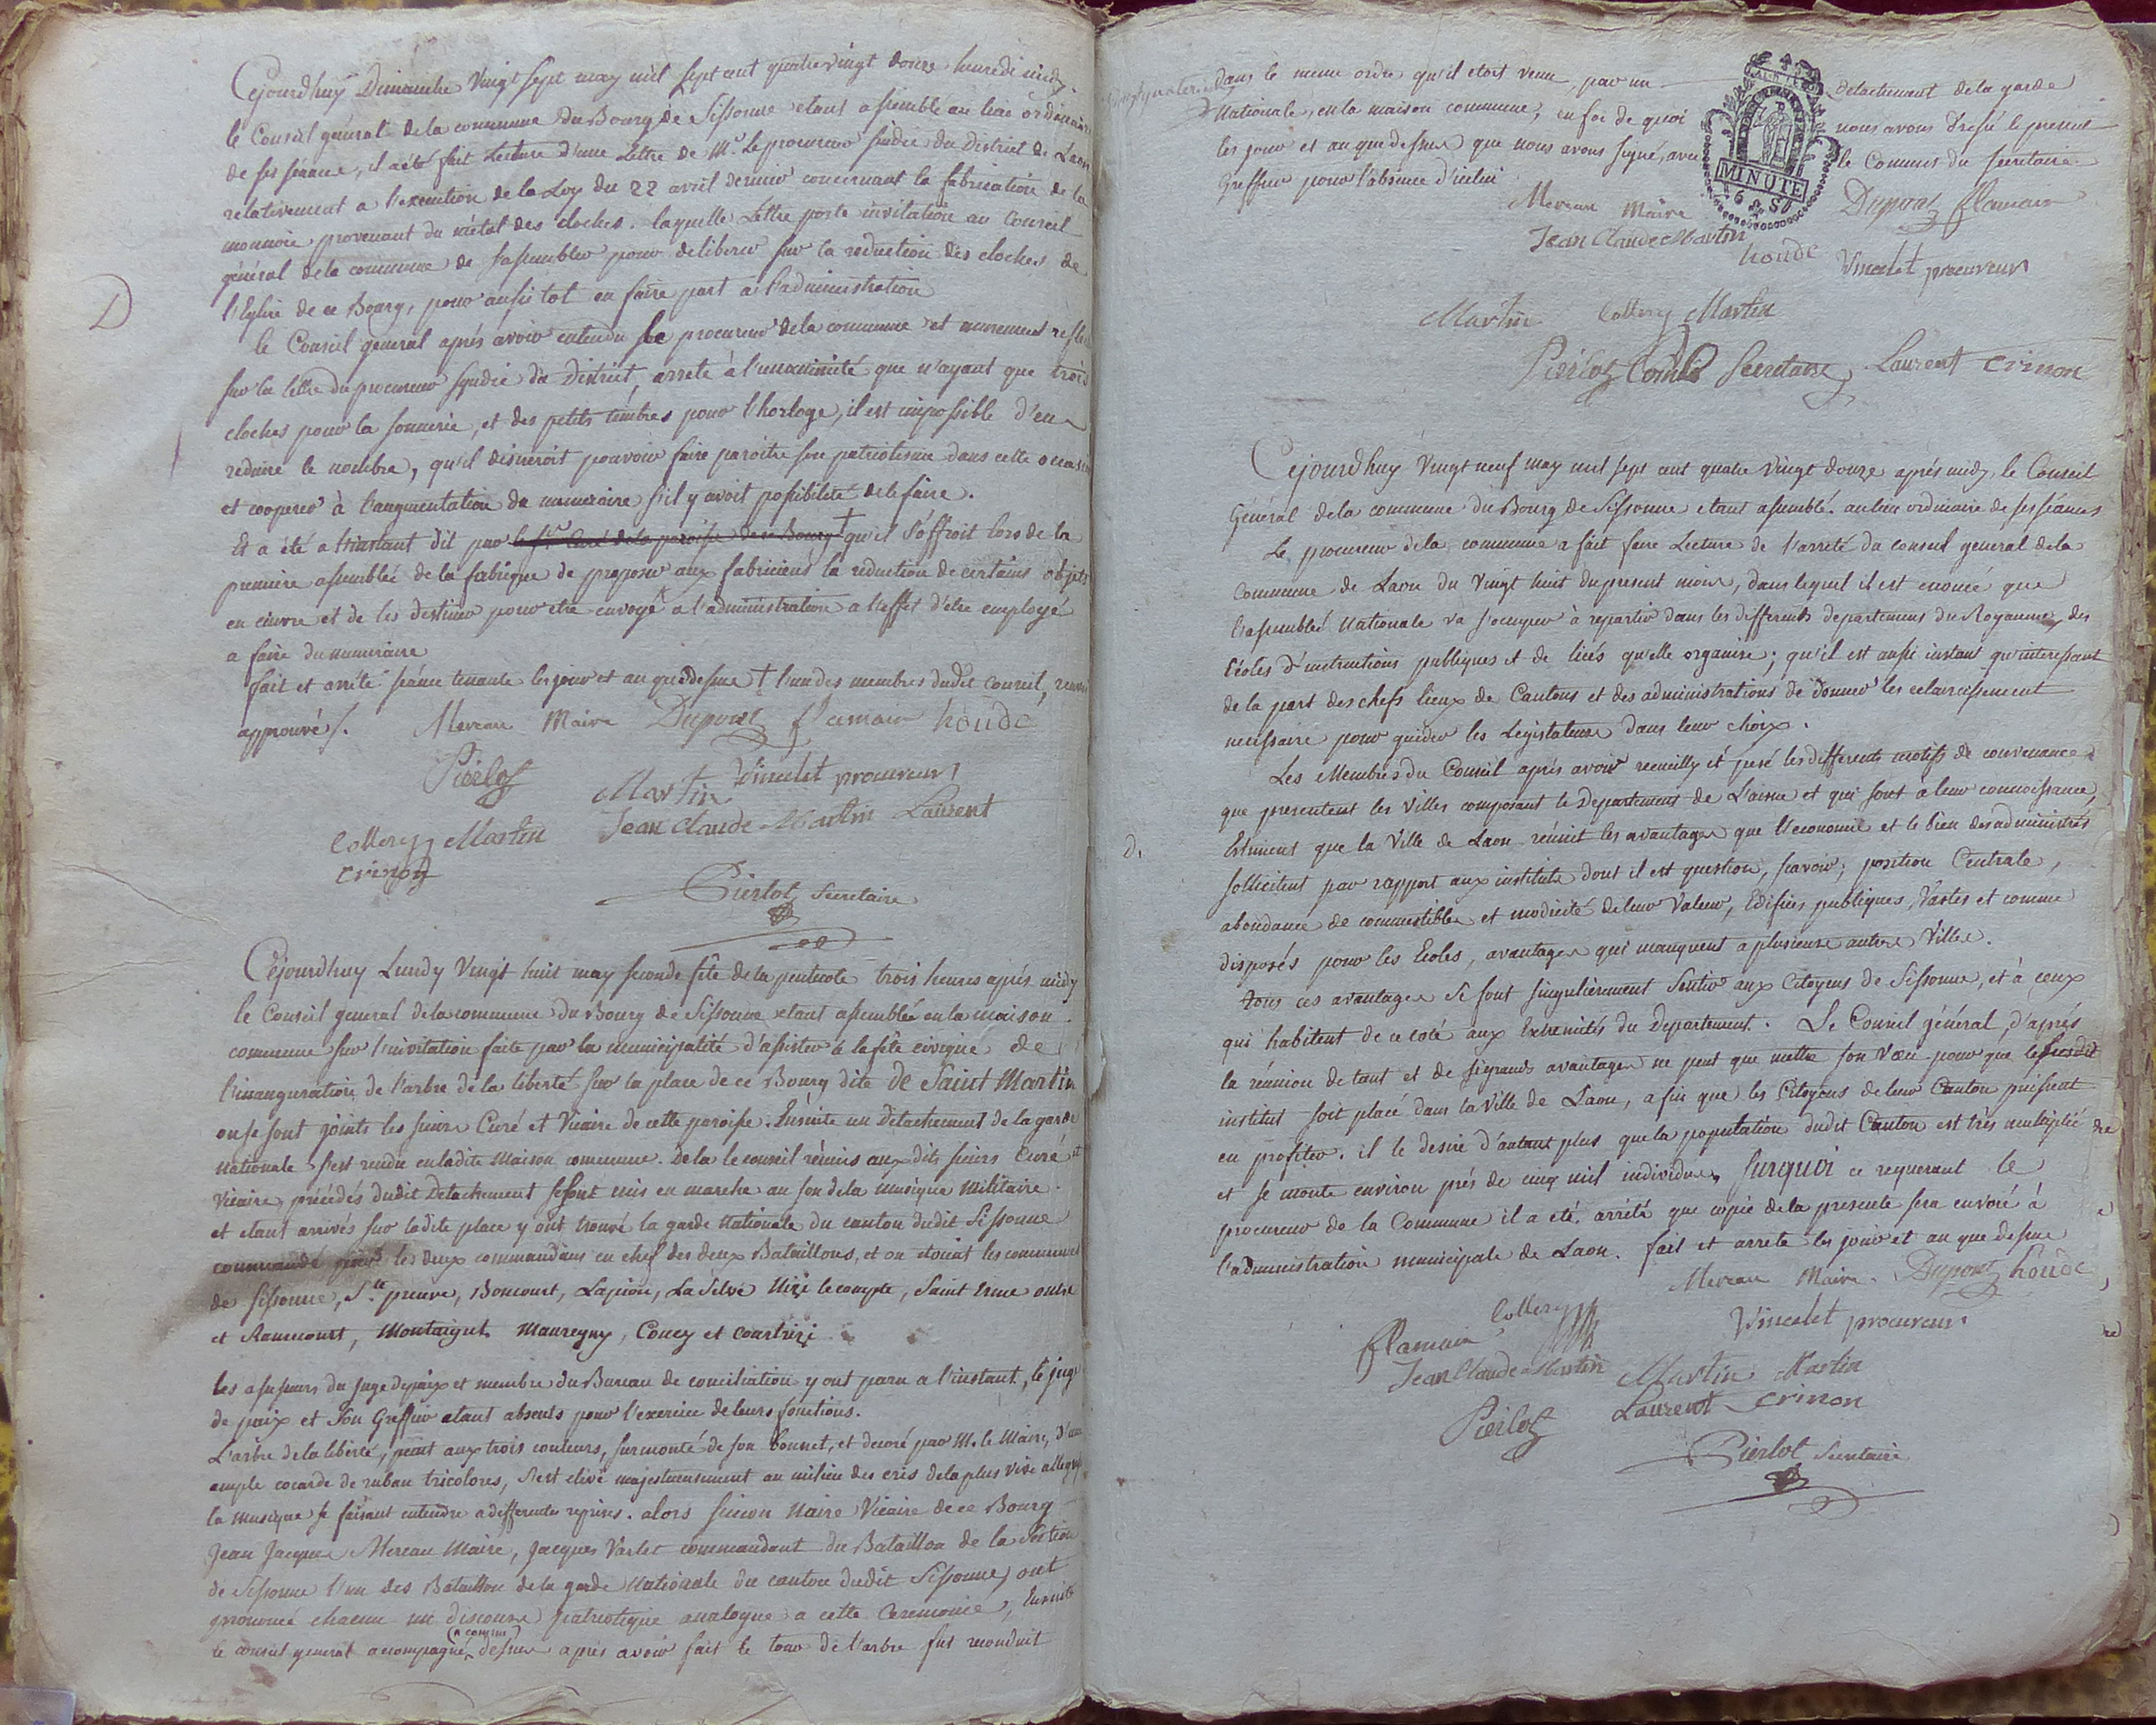 Cejourdhuy Dimanche Vingt sept may mil sept cent quatre vingt douze heure de midy.
le Conseil général de la commune du Bourg de Sissonne etant assemblé au lieu ordinaire
de ses séances, il a été fait Lecture d'une Lettre de Mr. Le procureur sindic du District de Laon
relativement a l'execution de la Loy du 22 avril dernier concernant la fabrication de la
monnoie provenant du métal des cloches. laquelle Lettre porte invitation au Conseil
général de la commune de s'assembler pour deliberer sur la reduction des cloches de
l'Eglise de ce Bourg, pour aussi tot en faire part à l'administration
D
le Conseil general après avoir entendu le procureur de la commune et murement reflechi
sur la lettre du procureur syndic du District, arrete à l'unanimité que n'ayant que trois
cloches pour la sonnerie, et des petits timbres pour l'horloge, il est impossible d'en
reduire le nombre, qu'il desireroit pouvoir faire paroitre son patriotisme dans cette occasion
et cooperer à l'augmentation du numeraire s'il y avoit possibilité de le faire.
Et a été a l'instant dit par le sr. Curé de la paroisse de ce Bourg † qu'il s'offroit lors de la
premiere assemblée de la fabrique de proposer aux fabriciens la reduction de certains objets
en cuivre et de les destiner pour etre envoyé a l'administration a l'effet d'etre employé
a faire du numeraire
fait et arrété séance tenante les jour et an que dessus † l'un des membres dudit Conseil, renvoi
approuvé /. Mereau Maire Dupont flamain houde
Pierlot Martin Vincelet procureur
Collery Martin Jean Claude Martin Laurent
crinon
Pierlot Secretaire
Cejourdhuy Lundy Vingt huit may seconde fête de la pentecote trois heures après midy
le Conseil general de la commune du Bourg de Sissonne etant assemblé en la maison
commune sur l'invitation faite par la municipalité d'assister à la fête civique de
l'inauguration de l'arbre de la liberté sur la place de ce Bourg dite de Saint Martin
ou se sont joints les sieurs Curé et Vicaire de cette paroisse. Ensuite un Detachement de la garde
nationale s'est rendu en ladite Maison commune. De la le conseil réunis aux dits sieurs Curé et
Vicaire, précédés dudit Detachement se sont mis en marche au son de la musique Militaire.
et etant arrivés sur ladite place y ont trouvé la garde Nationale du canton dudit Sissonne
commandé par les deux commandans en chef des deux Bataillons, et ou etoient les communes
de Sissonne, Ste. preuve, Boncourt, Lapion, La Selve Nizi le compte, Saint Erme outre
et Ramecourt, Montaigut Mauregny, Coucy et courtrizi
les assesseurs du Juge de paix et membre du Bureau de conciliation y ont paru a l'instant, le juge
de paix et son Greffier etant absents pour l'exercice de leurs fonctions.
L'arbre de la liberté, peint aux trois couleurs, surmonté de son bonnet, et decoré par M. le Maire, d'une
ample cocarde de ruban tricolores, s'est elivé majestueusement au milieu des cris de la plus vive allegresse
la musique se faisant entendre a differentes reprises. alors simon Naire Vicaire de ce Bourg
Jean Jacques Mereau Maire, Jacques Varlet commandant du Bataillon de la Section
de Sissonne l'un des Bataillon de la garde Nationale du canton dudit Sissonne, ont
prononcé chacun un discours patriotique analogue a cette Ceremonie, Ensuite
le conseil general accompagné (comme) dessus apres avoir fait le tour de l'arbre fut reconduit
dans le meme ordre qu'il etoit venu par un Detachement de la garde
Nationale, en la maison commune, en foi de quoi nous avons dressé le present
les jour et an que dessus que nous avons signé, avec le Commis du secretaire
Greffier pour l'absence d'icelui
MINUTE
Mereau Maire Dupont flamain
Jean Claude Martin houde Vincelet procureur
Martin Collery Martin
Pierlot Commis Secretaire Laurent crinon
Cejourdhuy Vingt neuf may mil sept cent quatre Vingt douze après midy le Conseil
Général de la commune du Bourg de Sissonne etant assemblé au lieu ordinaire de ses séances
Le procureur de la commune a fait faire Lecture de l'arreté du conseil general de la
Commune de Laon du Vingt huit du present mois, dans lequel il est enoncé que
l'assemblée Nationale va s'occuper à repartir dans les differents departemens du Royaume, des
Ecoles d'instructions publiques et de licés qu'elle organise; qu'il est aussi instant qu'interessant
de la part des chefs lieux de Cantons et des administrations de donner les eclaircissement
necessaire pour guider les Legislateurs dans leur choix.
Les Membres du Conseil après avoir recueilly et pesé les differents motifs de convenance
que presentent les Villes composant le Departement de L'aisne et qui sont à leur connoissance,
d.
Estiment que la Ville de Laon réunit les avantages que l'economie et le bien des administrés
sollicitent par rapport aux instituts dont il est question, scavoir; position Centrale,
abondance de commestibles et modicité de leur Valeur, Edifices publiques, Vastes et comme
disposés pour les Ecoles, avantages qui manquent a plusieurs autres Villes.
tous ces avantages se font singulièrement Sentir aux Citoyens de Sissonne, et à ceux
qui habitent de ce coté aux Extremités du Departement. Le Conseil général, d'après
la réunion de tant et de si grands avantages ne peut que mettre son Vœu pour que le susdit
institut soit placé dans la Ville de Laon, afin que les Citoyens de leur Canton puissent
en profiter. il le desire d'autant plus que la population dudit Canton est très multiplié
et se monte environ près de cinq mil individus, surquoi ce requerant le
procureur de la Commune il a été arrété que copie de la presente sera envoié à
l'administration municipale de Laon. fait et arrete les jour et an que dessus
Mereau Maire Dupont houde
flamain Collery Vincelet procureur
Jean Claude Martin Martin Martin
Pierlot Laurent crinon
Pierlot Secretaire